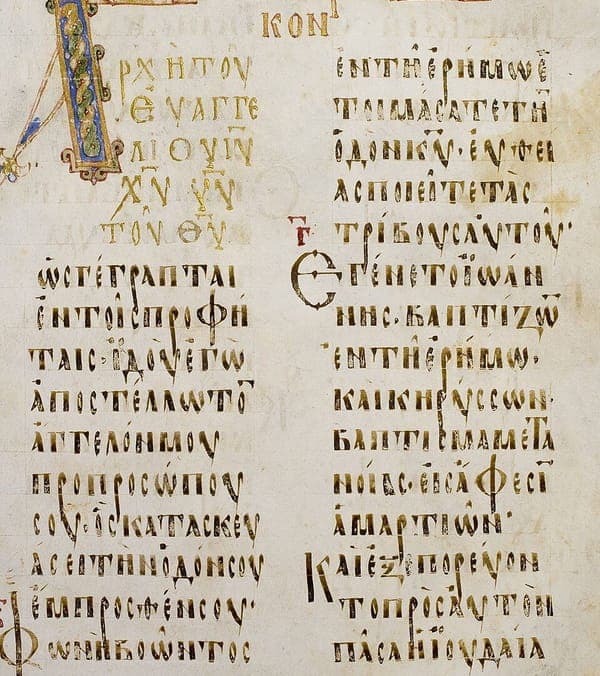 ΚΟΝΤ
ΑΡΧΗ ΤΟΥ
ΕΥΑΓΓΕ
ΛΙΟΥ ΙΥ
ΧΥ ΥΥ
ΤΟΥ ΘΥ
ὩΣ ΓΕΓΡΑΠΤΑΙ
ἘΝ ΤΟΙΣ ΠΡΟΦΗ
ΤΑΙΣ· ἸΔΟῪ ἘΓΩ
ἈΠΟΣΤΕΛΛΩ ΤΟ̅
ἈΓΓΕΛΟΝ ΜΟΥ
ΠΡΟ ΠΡΟΣΩΠΟΥ
ΣΟΥ· ὍΣ ΚΑΤΑΣΚΕΥ
ΑΣΕΙ ΤΗΝ ὉΔΟΝ ΣΟΥ
ἘΜΠΡΟΣΘΕΝ ΣΟΥ·
ΦΩΝΗ ΒΟΩΝΤΟΣ
ἘΝ ΤΗ ἘΡΗΜΩ Ἑ
ΤΟΙΜΑΣΑΤΕ ΤΗ̅
ὉΔΟΝ Κ̅Υ̅· ΕΥΘΕΙ
ΑΣ ΠΟΙΕΙΤΕ ΤΑΣ
Γ̅ ΤΡΙΒΟΥΣ ΑΥΤΟΥ·
ΕΓΕΝΕΤΟ ἸΩΑΝ
ΝΗΣ· ΒΑΠΤΙΖΩ̅
ἘΝ ΤΗ ἘΡΗΜΩ·
ΚΑΙ ΚΗΡΥΣΣΩΝ
ΒΑΠΤΙΣΜΑ ΜΕΤΑ
ΝΟΙΑΣ· ΕἸΣ ἈΦΕΣΙ̅
ἉΜΑΡΤΙΩΝ·
ΚΑΙ ἘΞΕΠΟΡΕΥΟΝ
ΤΟ ΠΡΟΣ ΑΥΤΟΝ
ΠΑΣΑ Ἡ ΙΟΥΔΑΙΑ